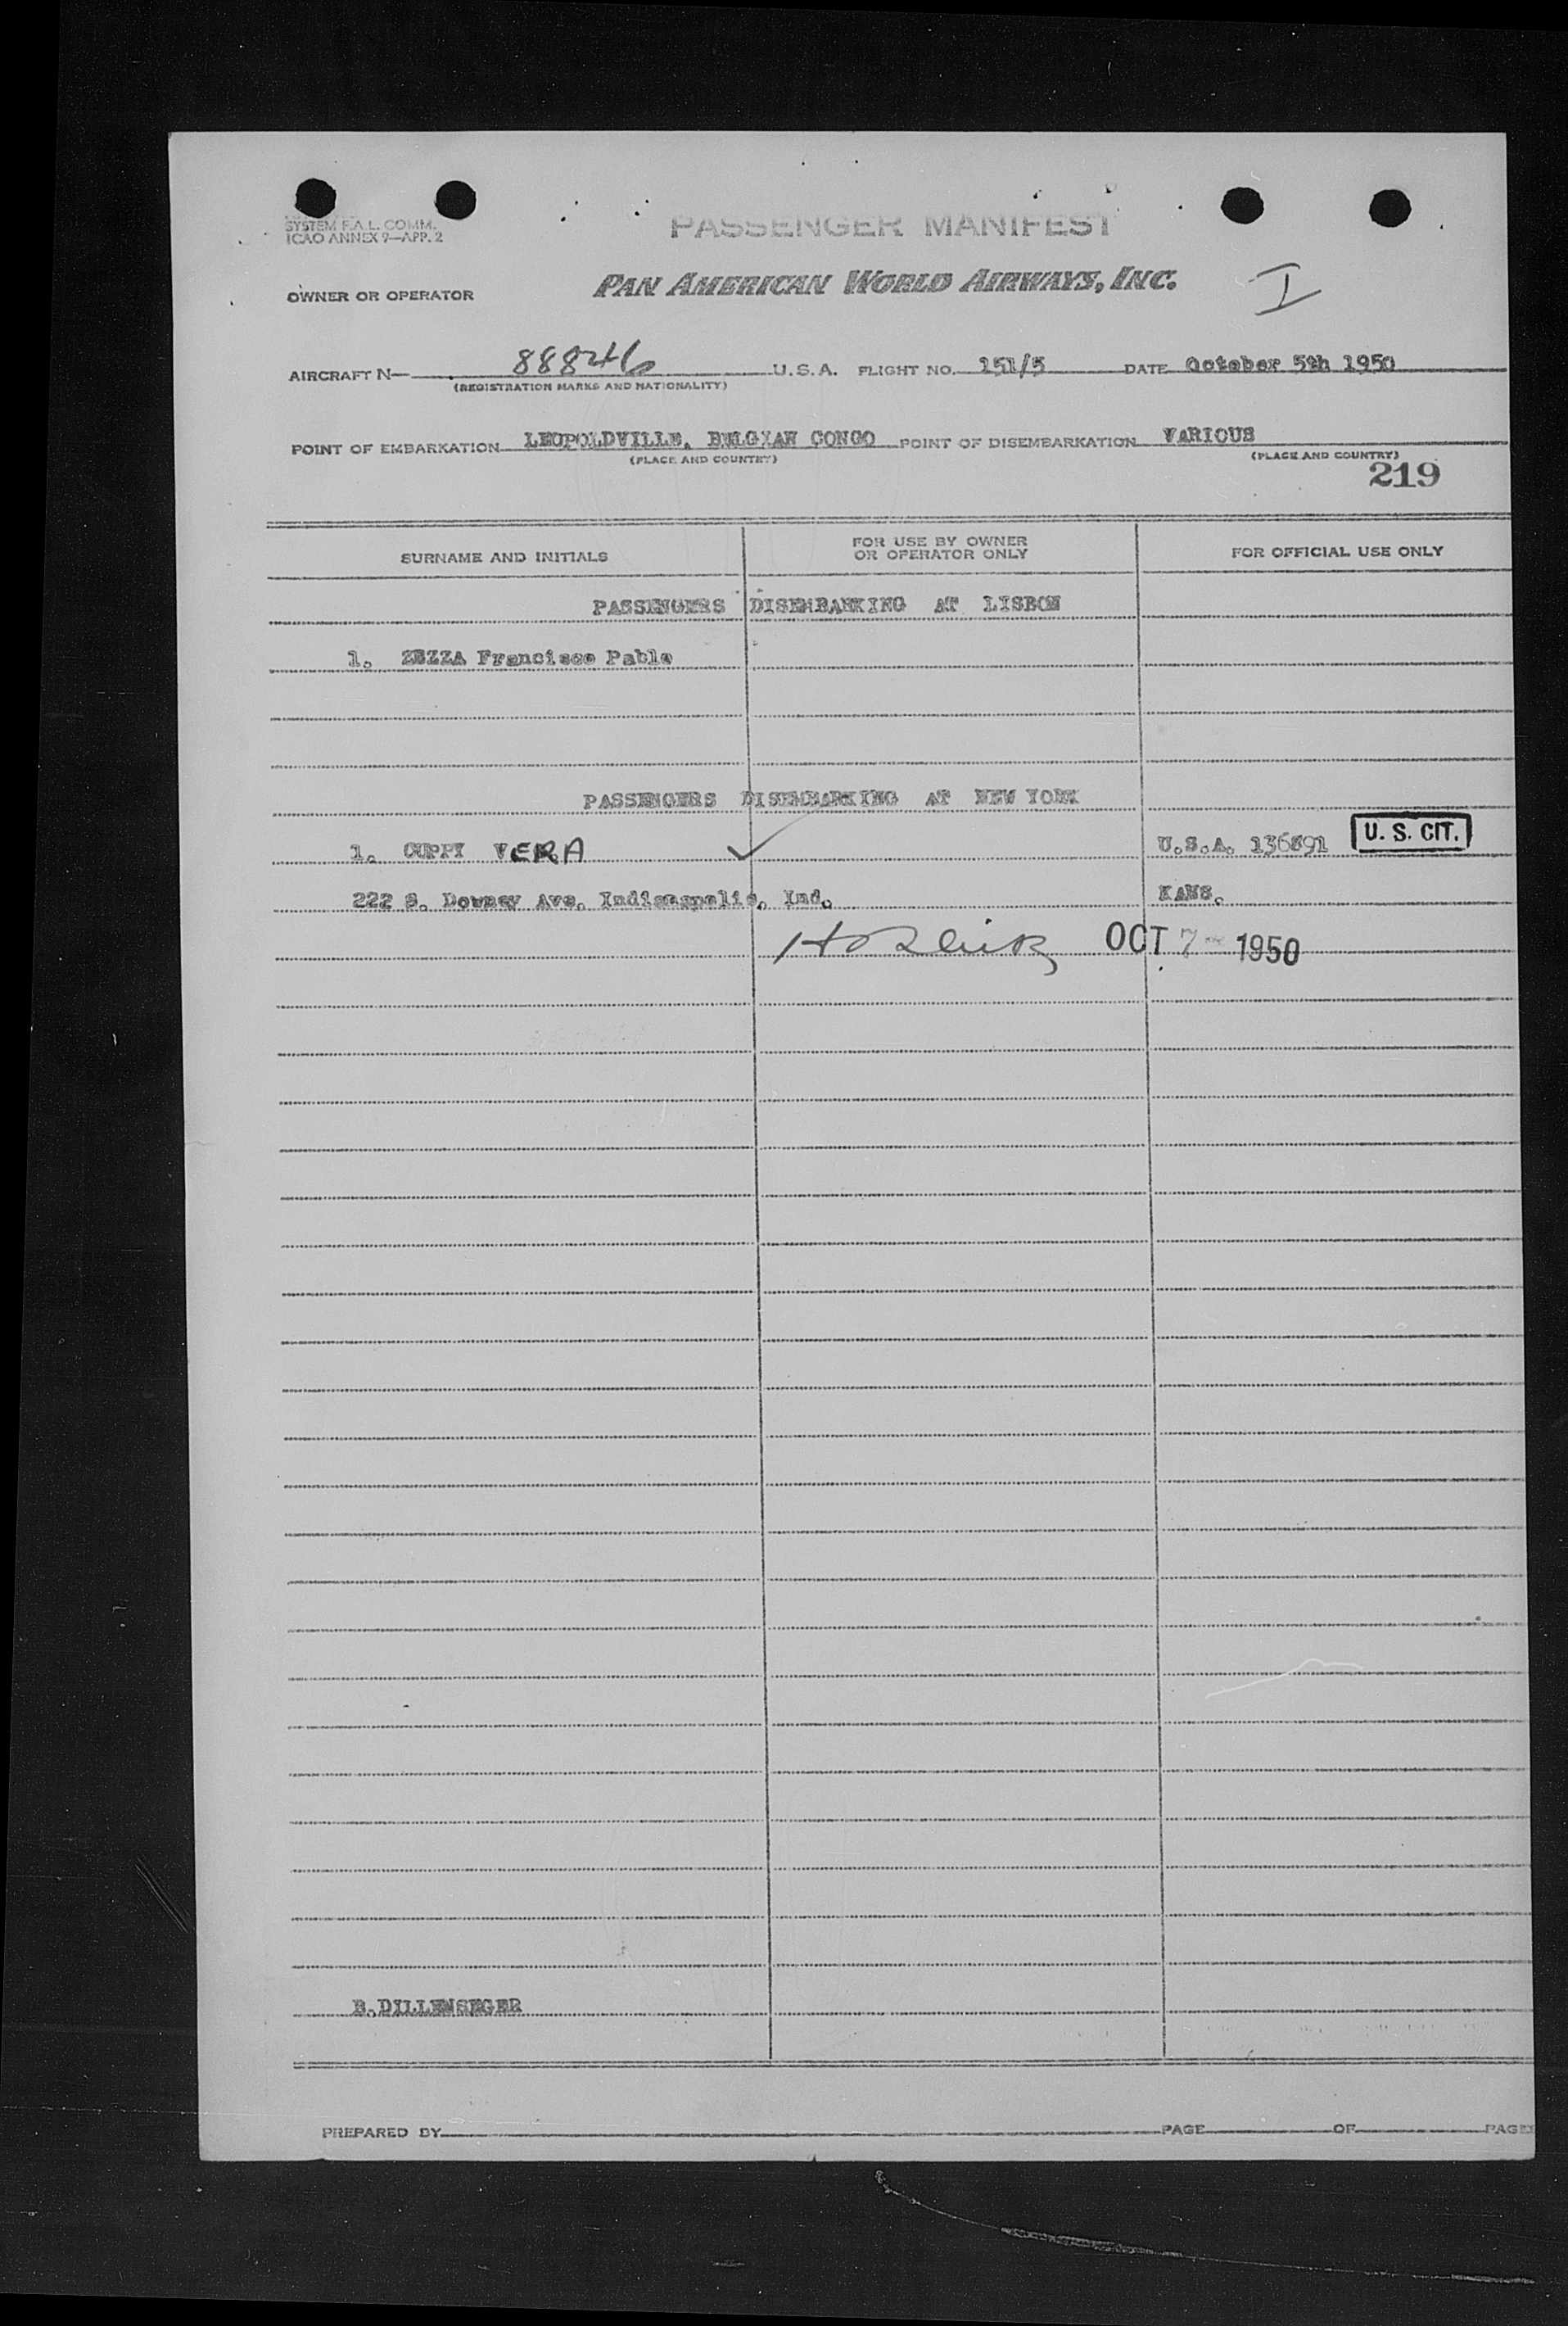 SYSTEM F.A.L. COMM.
ICAO ANNEX 9—APP. 2
PASSENGER MANIFEST
OWNER OR OPERATOR PAN AMERICAN WORLD AIRWAYS, INC. I
AIRCRAFT N— 88846 U.S.A. FLIGHT NO. 151/5 DATE October 5th 1950
(REGISTRATION MARKS AND NATIONALITY)
POINT OF EMBARKATION LEOPOLDVILLE, BELGIAN CONGO POINT OF DISEMBARKATION VARIOUS
(PLACE AND COUNTRY) (PLACE AND COUNTRY)
219
SURNAME AND INITIALS FOR USE BY OWNER OR OPERATOR ONLY FOR OFFICIAL USE ONLY
PASSENGERS DISEMBARKING AT LISBON
1. ZEZZA Francisco Pablo
PASSENGERS DISEMBARKING AT NEW YORK
1. CUPPY VERA U.S.A. 136891 U. S. CIT.
222 S. Downey Ave. Indianapolis, Ind. KANS.
OCT 7- 1950
B.DILLENSEGER
PREPARED BY PAGE OF PAGES